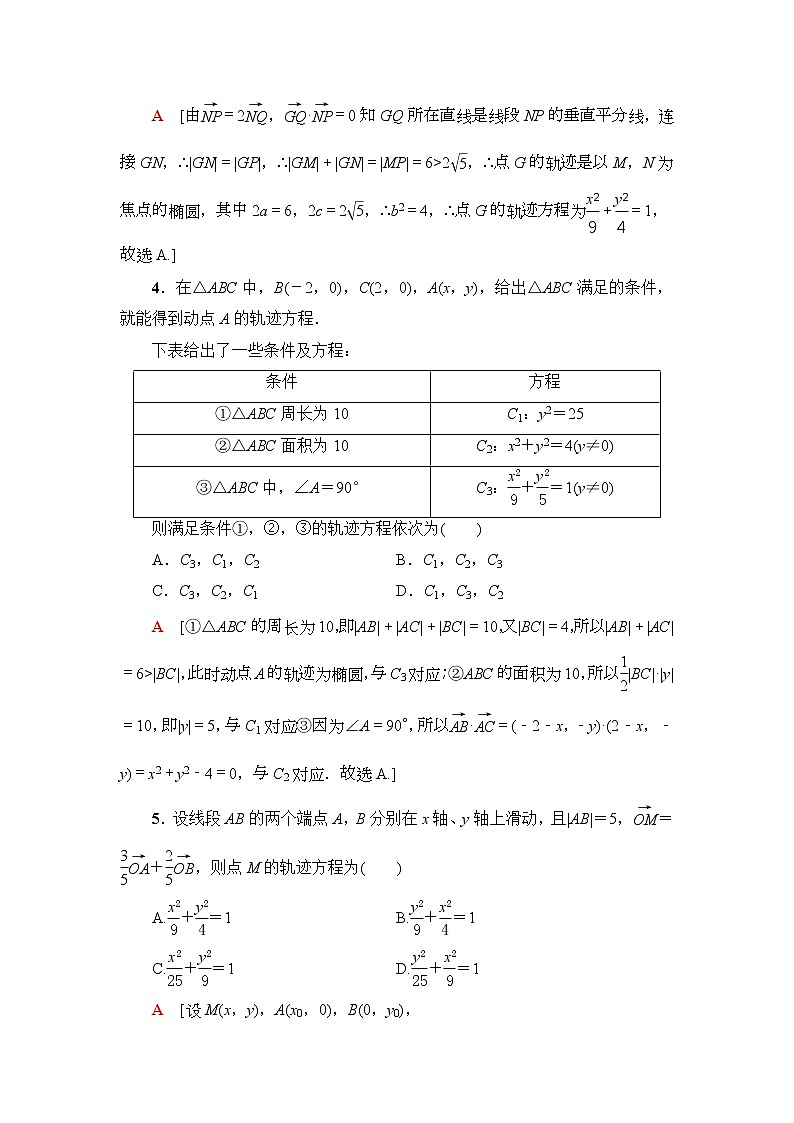 A [由NP→=2NQ→，GQ→·NP→=0知GQ所在直线是线段NP的垂直平分线，连
接GN，∴|GN|=|GP|，∴|GM|+|GN|=|MP|=6>2√5，∴点G的轨迹是以M，N为
焦点的椭圆，其中2a=6，2c=2√5，∴b²=4，∴点G的轨迹方程为x²/9+y²/4=1，
故选A.]
4．在△ABC中，B(－2，0)，C(2，0)，A(x，y)，给出△ABC满足的条件，
就能得到动点A的轨迹方程．
下表给出了一些条件及方程：
条件 方程
①△ABC周长为10 C₁：y²＝25
②△ABC面积为10 C₂：x²＋y²＝4(y≠0)
③△ABC中，∠A＝90° C₃：x²/9＋y²/5＝1(y≠0)
则满足条件①，②，③的轨迹方程依次为(　　)
A．C₃，C₁，C₂ B．C₁，C₂，C₃
C．C₃，C₂，C₁ D．C₁，C₃，C₂
A [①△ABC的周长为10,即|AB|+|AC|+|BC|=10,又|BC|=4,所以|AB|+|AC|
=6>|BC|,此时动点A的轨迹为椭圆,与C₃对应;②ABC的面积为10,所以1/2|BC|·|y|
=10,即|y|=5,与C₁对应③因为∠A=90°,所以AB→·AC→=(-2-x,-y)·(2-x，-
y)=x²+y²-4=0，与C₂对应．故选A.]
5．设线段AB的两个端点A，B分别在x轴、y轴上滑动，且|AB|＝5，OM→＝
3/5OA→＋2/5OB→，则点M的轨迹方程为(　　)
A.x²/9＋y²/4＝1 B.y²/9＋x²/4＝1
C.x²/25＋y²/9＝1 D.y²/25＋x²/9＝1
A [设M(x，y)，A(x₀，0)，B(0，y₀)，